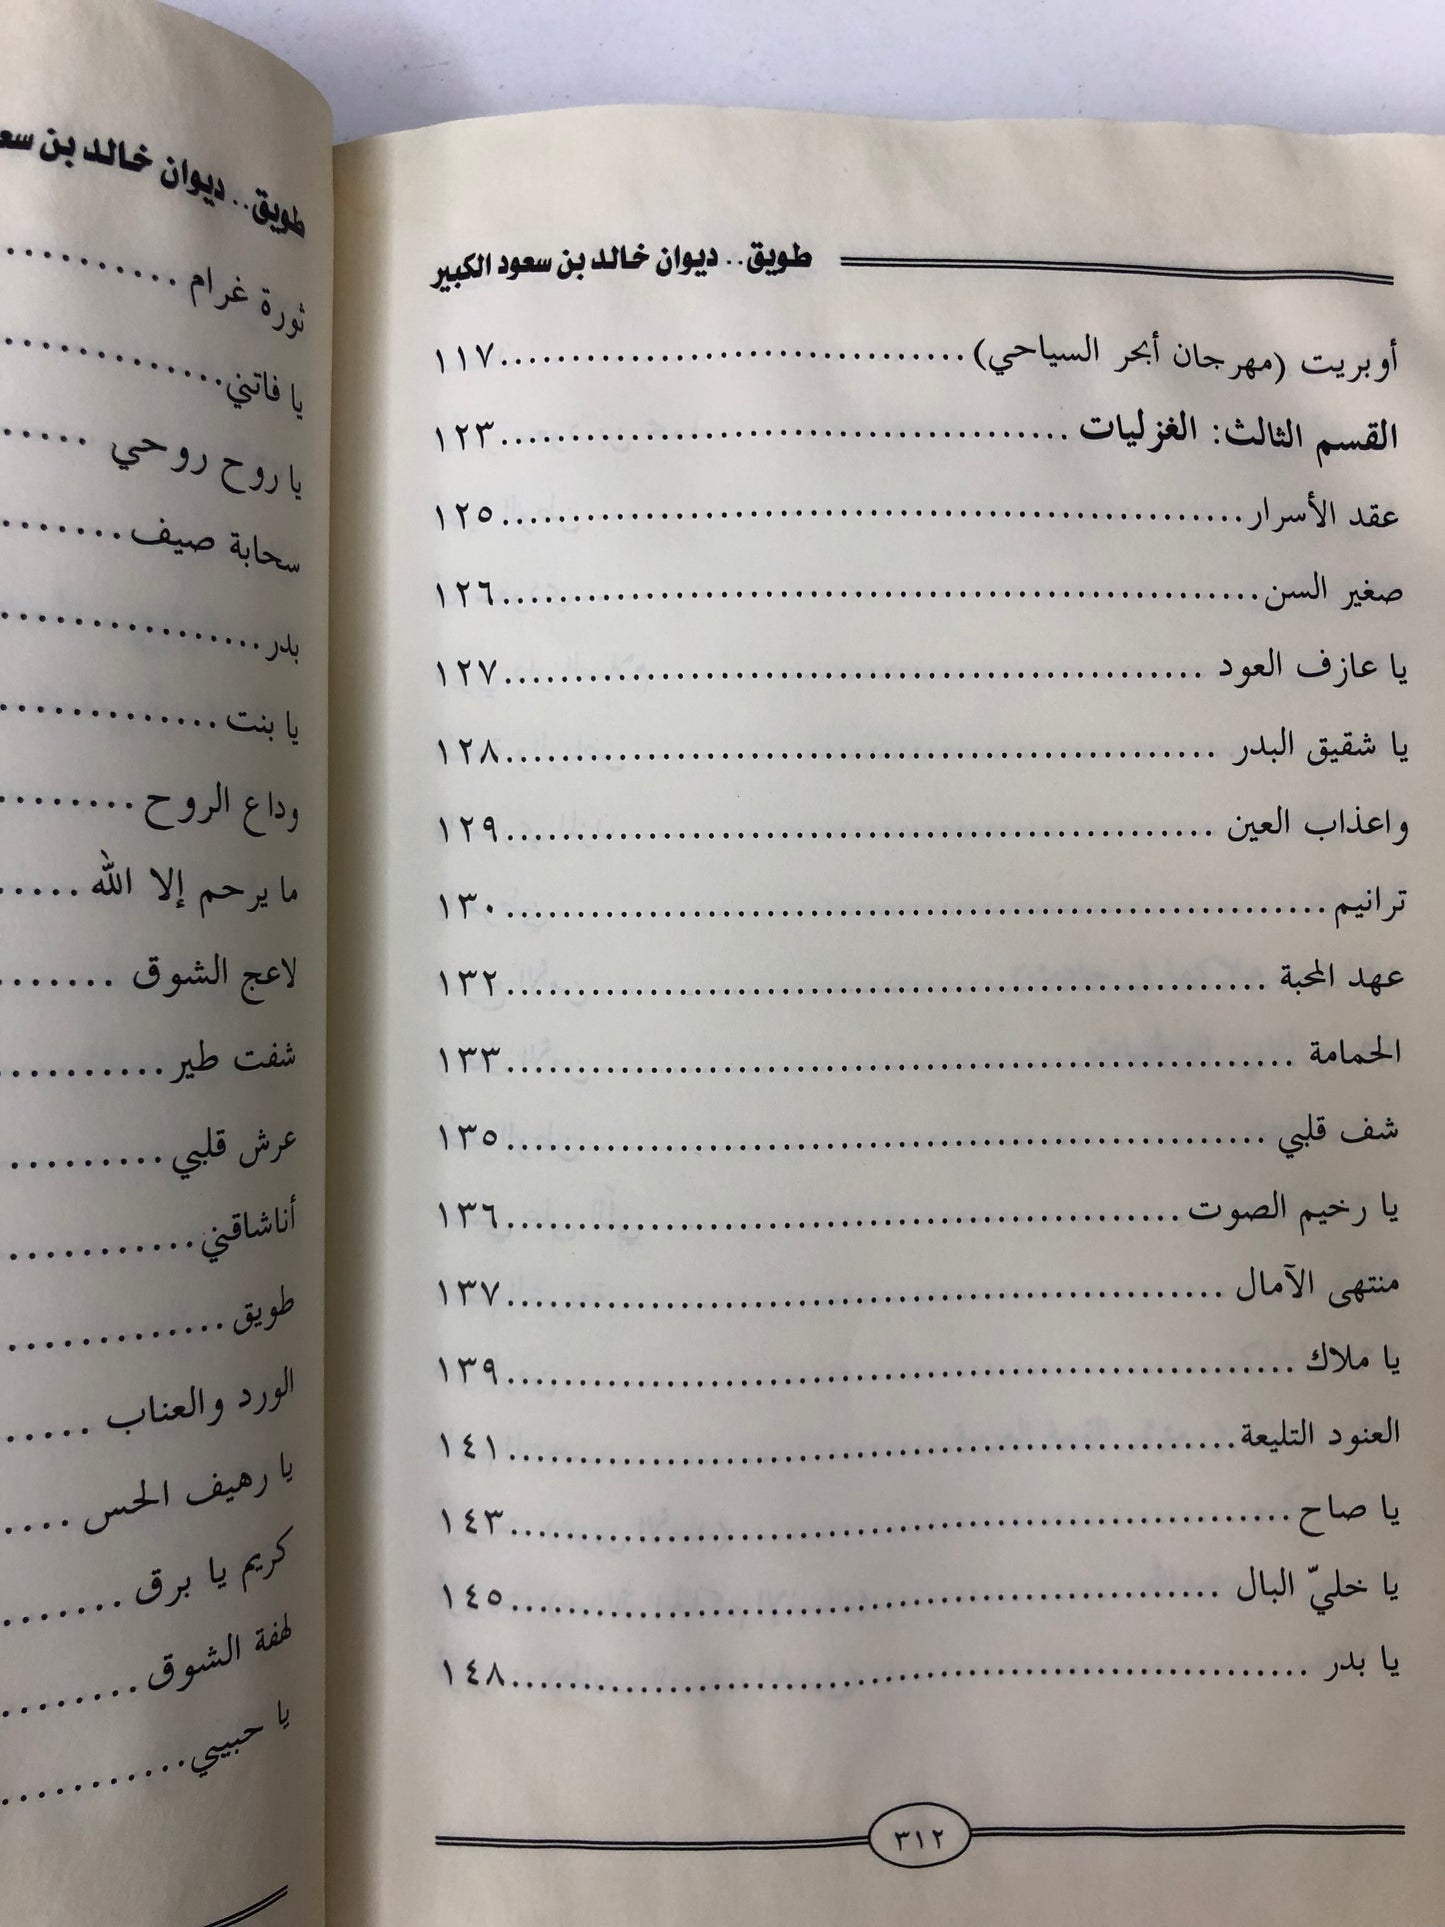 طويق.. ديوان خالد بن سعود الكبير
أوبريت (مهرجان أبحر السياحي)................................١١٧
القسم الثالث: الغزليات........................................١٢٣
عقد الأسرار....................................................١٢٥
صغير السن.....................................................١٢٦
يا عازف العود.................................................١٢٧
يا شقيق البدر..................................................١٢٨
واعذاب العين..................................................١٢٩
ترانيم..........................................................١٣٠
عهد المحبة.....................................................١٣٢
الحمامة........................................................١٣٣
شف قلبي......................................................١٣٥
يا رخيم الصوت................................................١٣٦
منتهى الآمال...................................................١٣٧
يا ملاك........................................................١٣٩
العنود التليعة...................................................١٤١
يا صاح.......................................................١٤٣
يا خليّ البال...................................................١٤٥
يا بدر.........................................................١٤٨
٣١٢
طويق.. ديوان خالد بن
ثورة غرام ..........
يا فاتني................
يا روح روحي .....
سحابة صيف........
بدر..................
يا بنت...............
وداع الروح.........
ما يرحم إلا الله.....
لاعج الشوق .......
شفت طير...........
عرش قلبي..........
أناشاقني............
طويق...............
الورد والعناب .....
يا رهيف الحس ....
كريم يا برق .......
لهفة الشوق........
يا حبيبي...........